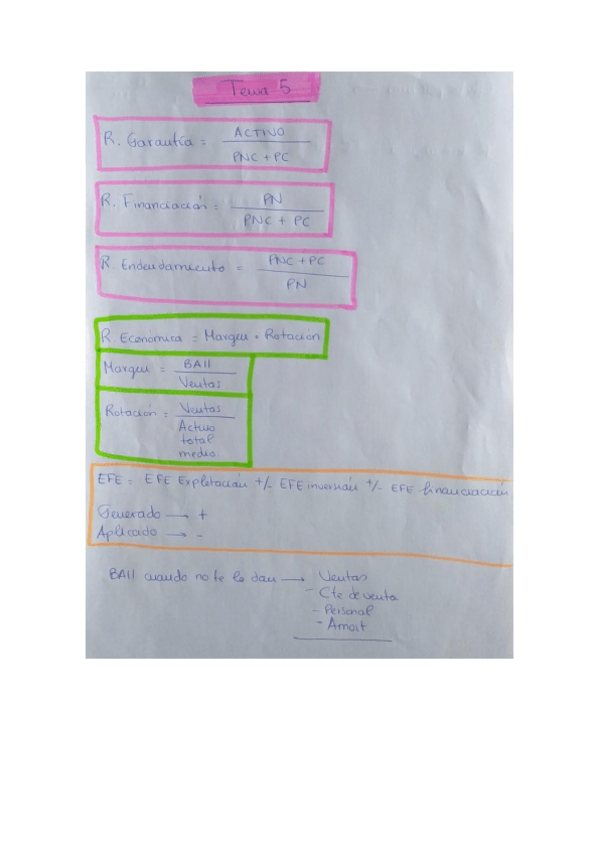 Tema 5
R. Garantía = ACTIVO / PNC + PC
R. Financiación = PN / PNC + PC
R. Endeudamiento = PNC + PC / PN
R. Económica = Margen · Rotación
Margen = BAII / Ventas
Rotación = Ventas / Activo total medio
EFE = EFE Explotación +/- EFE inversión +/- EFE financiación
Generado → +
Aplicado → -
BAII cuando no te lo dan → Ventas
- Cte de venta
- Personal
- Amort